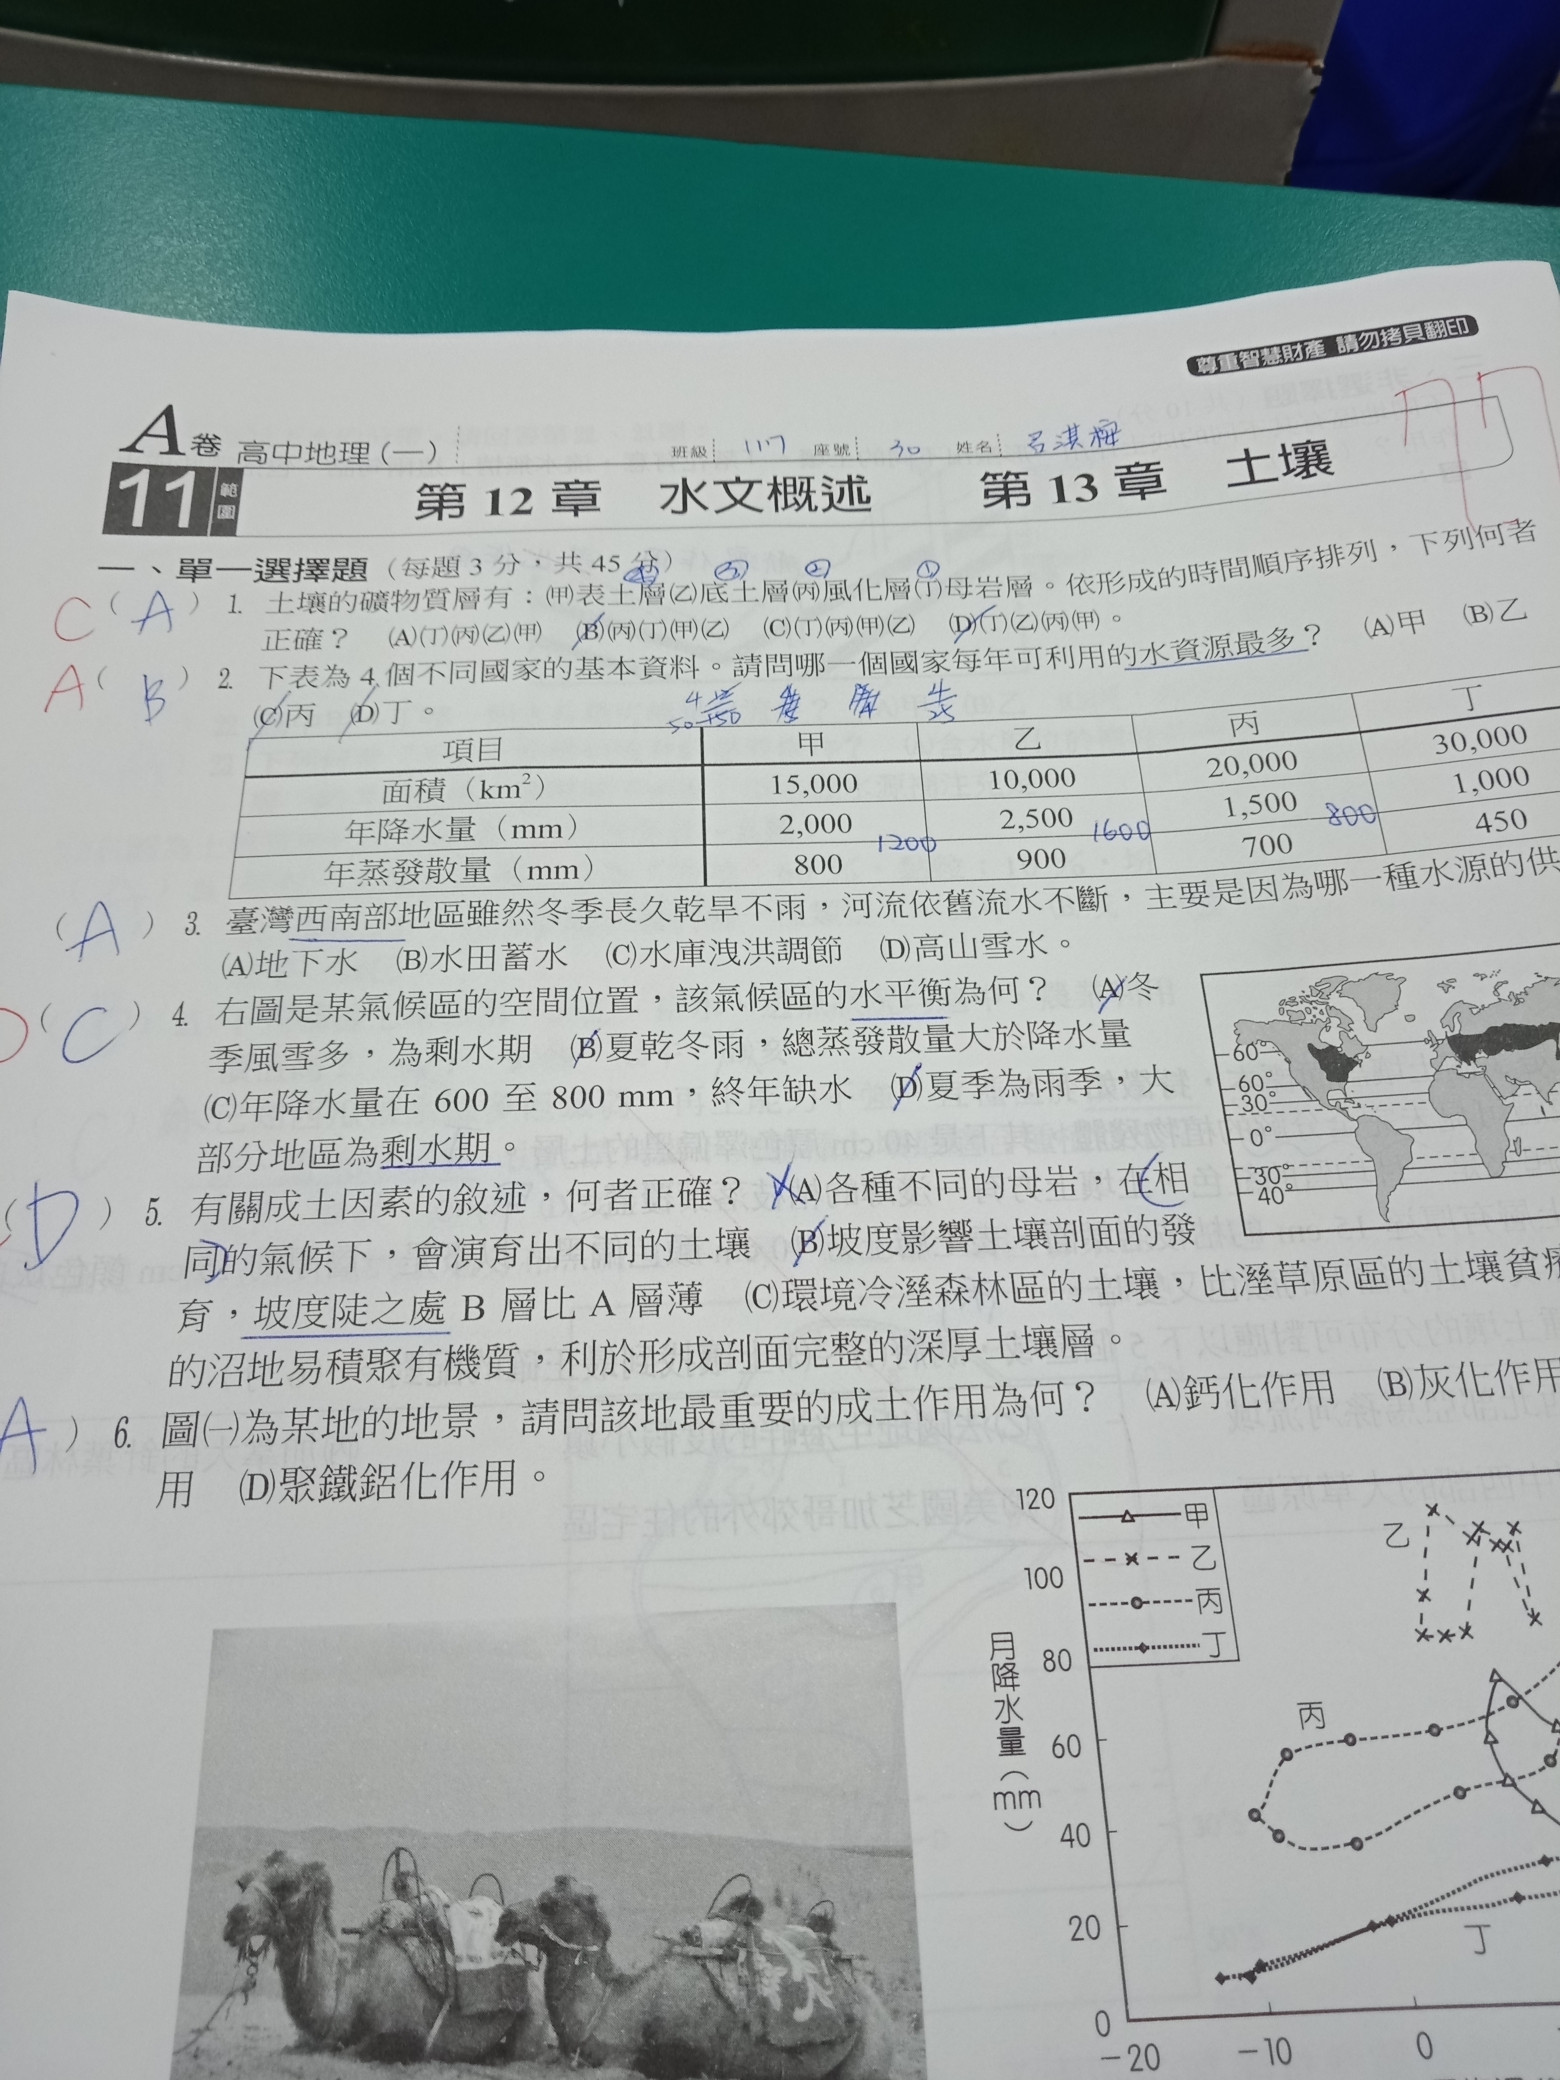 尊重智慧財產 請勿拷貝翻印
A卷 高中地理(一) 班級 117 座號 30 姓名 呂淇
11 範圍 第 12 章 水文概述 第 13 章 土壤
一、單一選擇題(每題 3 分,共 45 分)
④ ③ ② ①
C ( A ) 1. 土壤的礦物質層有:(甲)表土層(乙)底土層(丙)風化層(丁)母岩層。依形成的時間順序排列,下列何者
正確? (A)(丁)(丙)(乙)(甲) (B)(丙)(丁)(甲)(乙) (C)(丁)(丙)(甲)(乙) (D)(丁)(乙)(丙)(甲)。
A ( B ) 2. 下表為 4 個不同國家的基本資料。請問哪一個國家每年可利用的水資源最多? (A)甲 (B)乙
(C)丙 (D)丁。
項目 甲 乙 丙 丁
面積(km²) 15,000 10,000 20,000 30,000
年降水量(mm) 2,000 2,500 1,500 1,000
1200 1600 800
年蒸發散量(mm) 800 900 700 450
( A ) 3. 臺灣西南部地區雖然冬季長久乾旱不雨,河流依舊流水不斷,主要是因為哪一種水源的供
(A)地下水 (B)水田蓄水 (C)水庫洩洪調節 (D)高山雪水。
D ( C ) 4. 右圖是某氣候區的空間位置,該氣候區的水平衡為何? (A)冬
季風雪多,為剩水期 (B)夏乾冬雨,總蒸發散量大於降水量
(C)年降水量在 600 至 800 mm,終年缺水 (D)夏季為雨季,大
部分地區為剩水期。
60°
60°
30°
0°
30°
40°
( D ) 5. 有關成土因素的敘述,何者正確? (A)各種不同的母岩,在相
同的氣候下,會演育出不同的土壤 (B)坡度影響土壤剖面的發
育,坡度陡之處 B 層比 A 層薄 (C)環境冷溼森林區的土壤,比溼草原區的土壤貧瘠
的沼地易積聚有機質,利於形成剖面完整的深厚土壤層。
A ) 6. 圖(一)為某地的地景,請問該地最重要的成土作用為何? (A)鈣化作用 (B)灰化作用
用 (D)聚鐵鋁化作用。
月降水量(mm)
120
100
80
60
40
20
0
甲
乙
丙
丁
乙
丙
丁
-20 -10 0